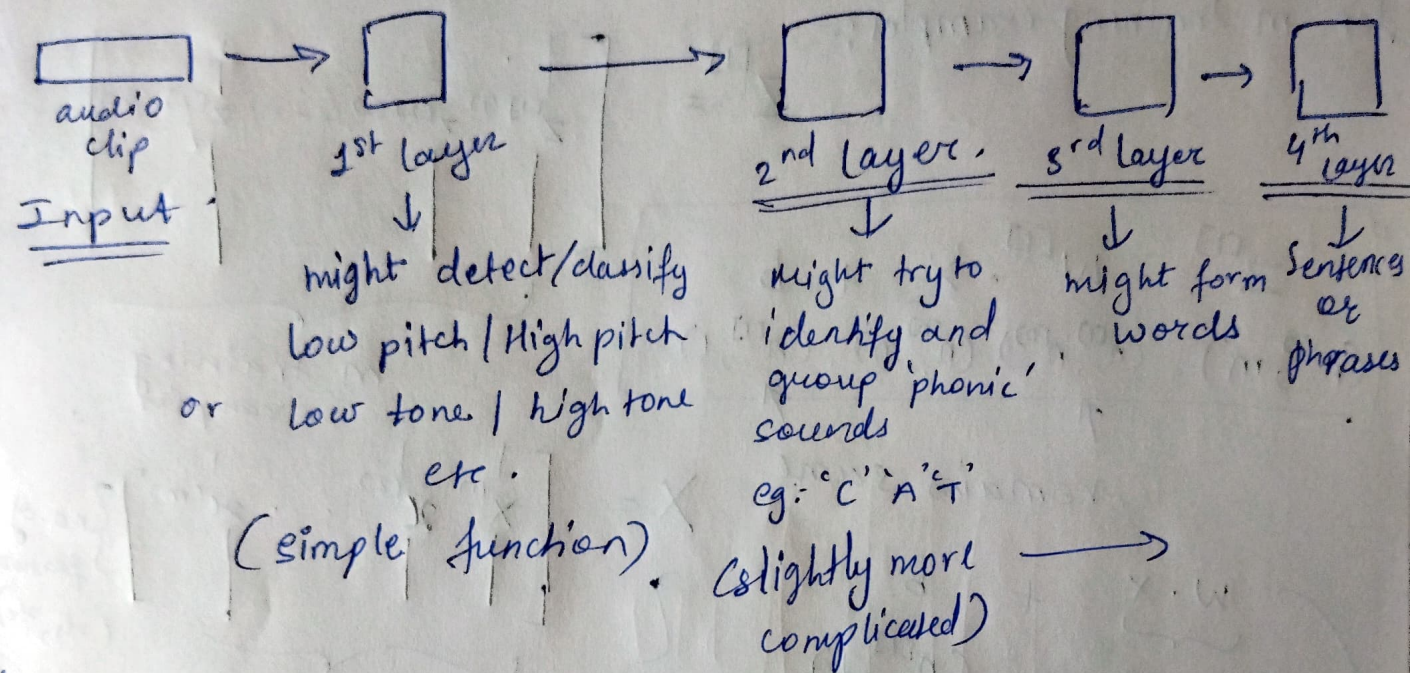 audio
clip
Input
1st layer
might detect/classify
low pitch / High pitch
or low tone / high tone
etc.
(simple function).
2nd layer.
might try to
identify and
group 'phonic'
sounds
eg:- 'C' 'A' 'T'
(slightly more
complicated)
3rd layer
might form
words
4th
layer
Sentences
or
phrases